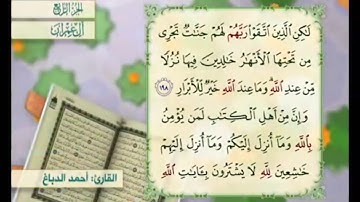 الجزء الرابع
آل عمران
لَكِنِ الَّذِينَ اتَّقَوْا رَبَّهُمْ لَهُمْ جَنَّاتٌ تَجْرِي
مِن تَحْتِهَا الْأَنْهَارُ خَالِدِينَ فِيهَا نُزُلًا
مِّنْ عِندِ اللَّهِ وَمَا عِندَ اللَّهِ خَيْرٌ لِّلْأَبْرَارِ ١٩٨
وَإِنَّ مِنْ أَهْلِ الْكِتَابِ لَمَن يُؤْمِنُ
بِاللَّهِ وَمَا أُنزِلَ إِلَيْكُمْ وَمَا أُنزِلَ إِلَيْهِمْ
خَاشِعِينَ لِلَّهِ لَا يَشْتَرُونَ بِآيَاتِ اللَّهِ
القارئ: أحمد الدباغ